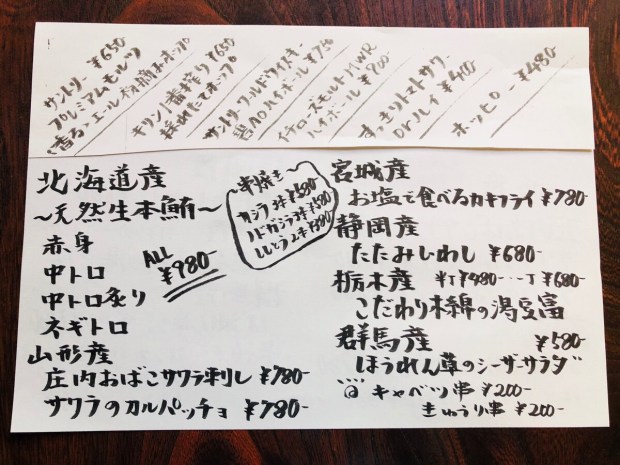 サントリー ¥650
プレミアムモルツ
〈香る〉エール 初摘みホップ
キリン一番搾り ¥650
採れたてホップ
サントリーワールドウイスキー
碧AOハイボール ¥750
イチローズモルト/WWR
ハイボール ¥900
すっきりトマトサワー
orハイ ¥400
ホッピー ¥480-
北海道産
~天然生本鮪~
赤身
中トロ
中トロ炙り
ネギトロ
ALL
¥980-
山形産
庄内おばこサワラ刺し ¥780-
サワラのカルパッチョ ¥780-
~串焼き~
カシラ 3本 ¥580-
ノドガシラ 3本 ¥580
ししとう 2本 ¥380-
宮城産
お塩で食べるカキフライ ¥780-
静岡産
たたみいわし ¥680-
栃木産 半丁¥480-…一丁¥680-
こだわり木綿の湯豆富
群馬産 ¥580-
ほうれん草のシーザーサラダ
キャベツ串 ¥200-
きゅうり串 ¥200-